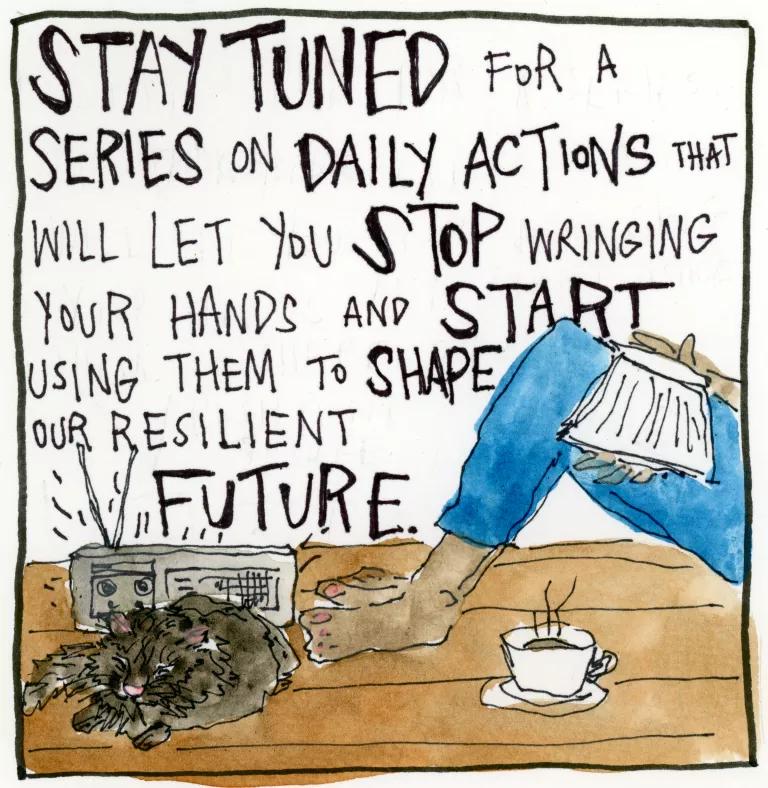 STAY TUNED FOR A
SERIES ON DAILY ACTIONS THAT
WILL LET YOU STOP WRINGING
YOUR HANDS AND START
USING THEM TO SHAPE
OUR RESILIENT
FUTURE.